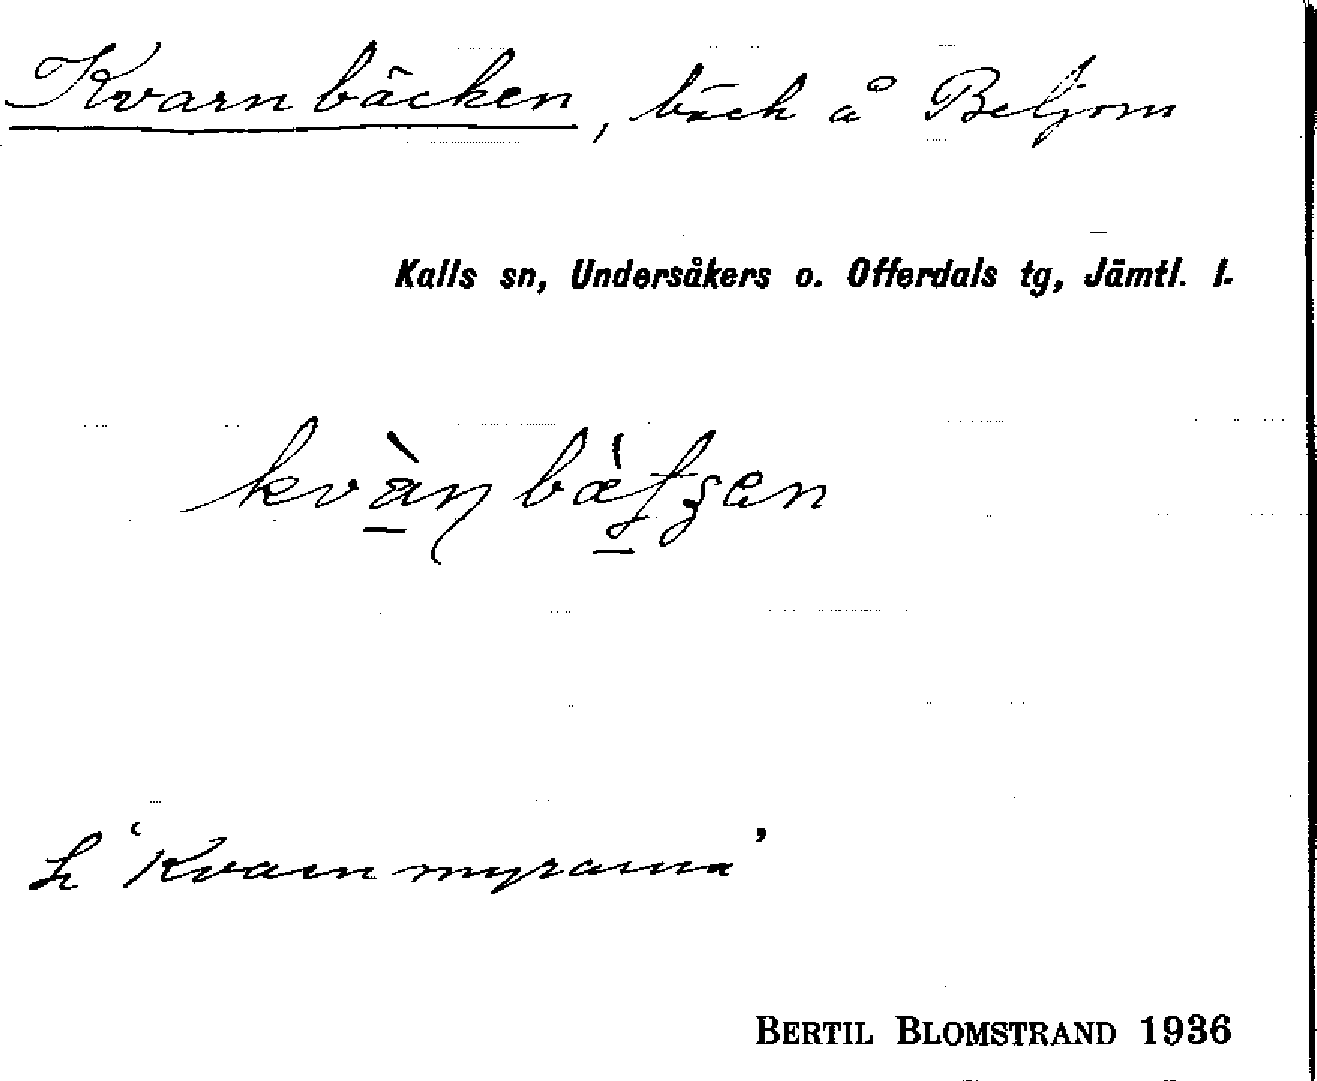 Kvarnbäcken, bäck å Beljom
Kalls sn, Undersåkers o. Offerdals tg, Jämtl. l.
"Kvarnmyrarna"
BERTIL BLOMSTRAND 1936